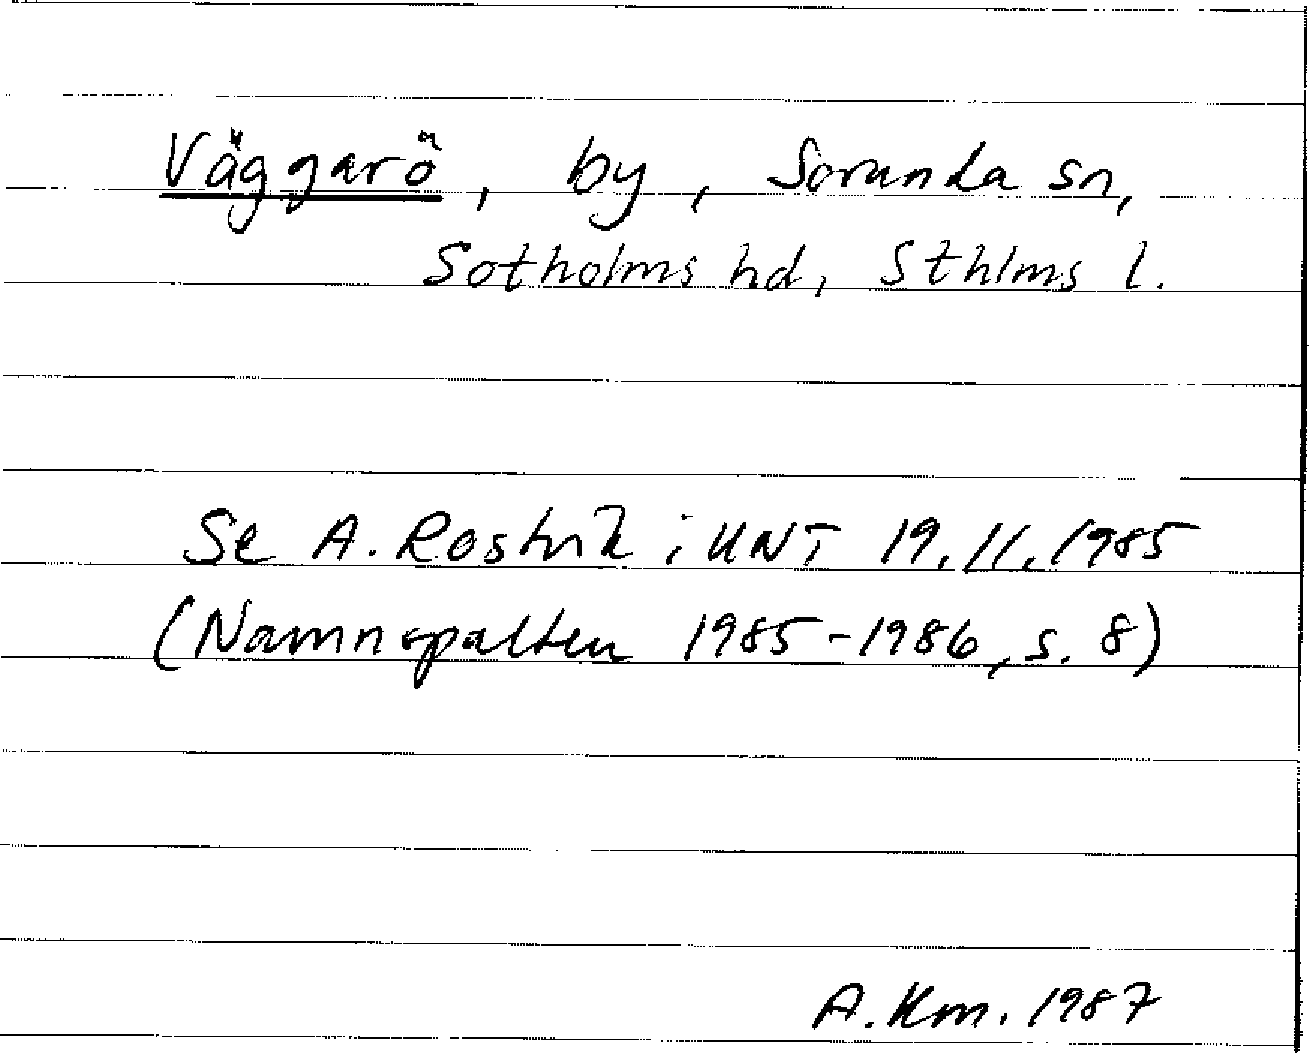 Väggarö, by, Sorunda sn,
Sotholms hd, Sthlms l.
Se A. Rostvik i UNT 19.11.1985
(Namnspalten 1985-1986, s. 8)
A. Km. 1987